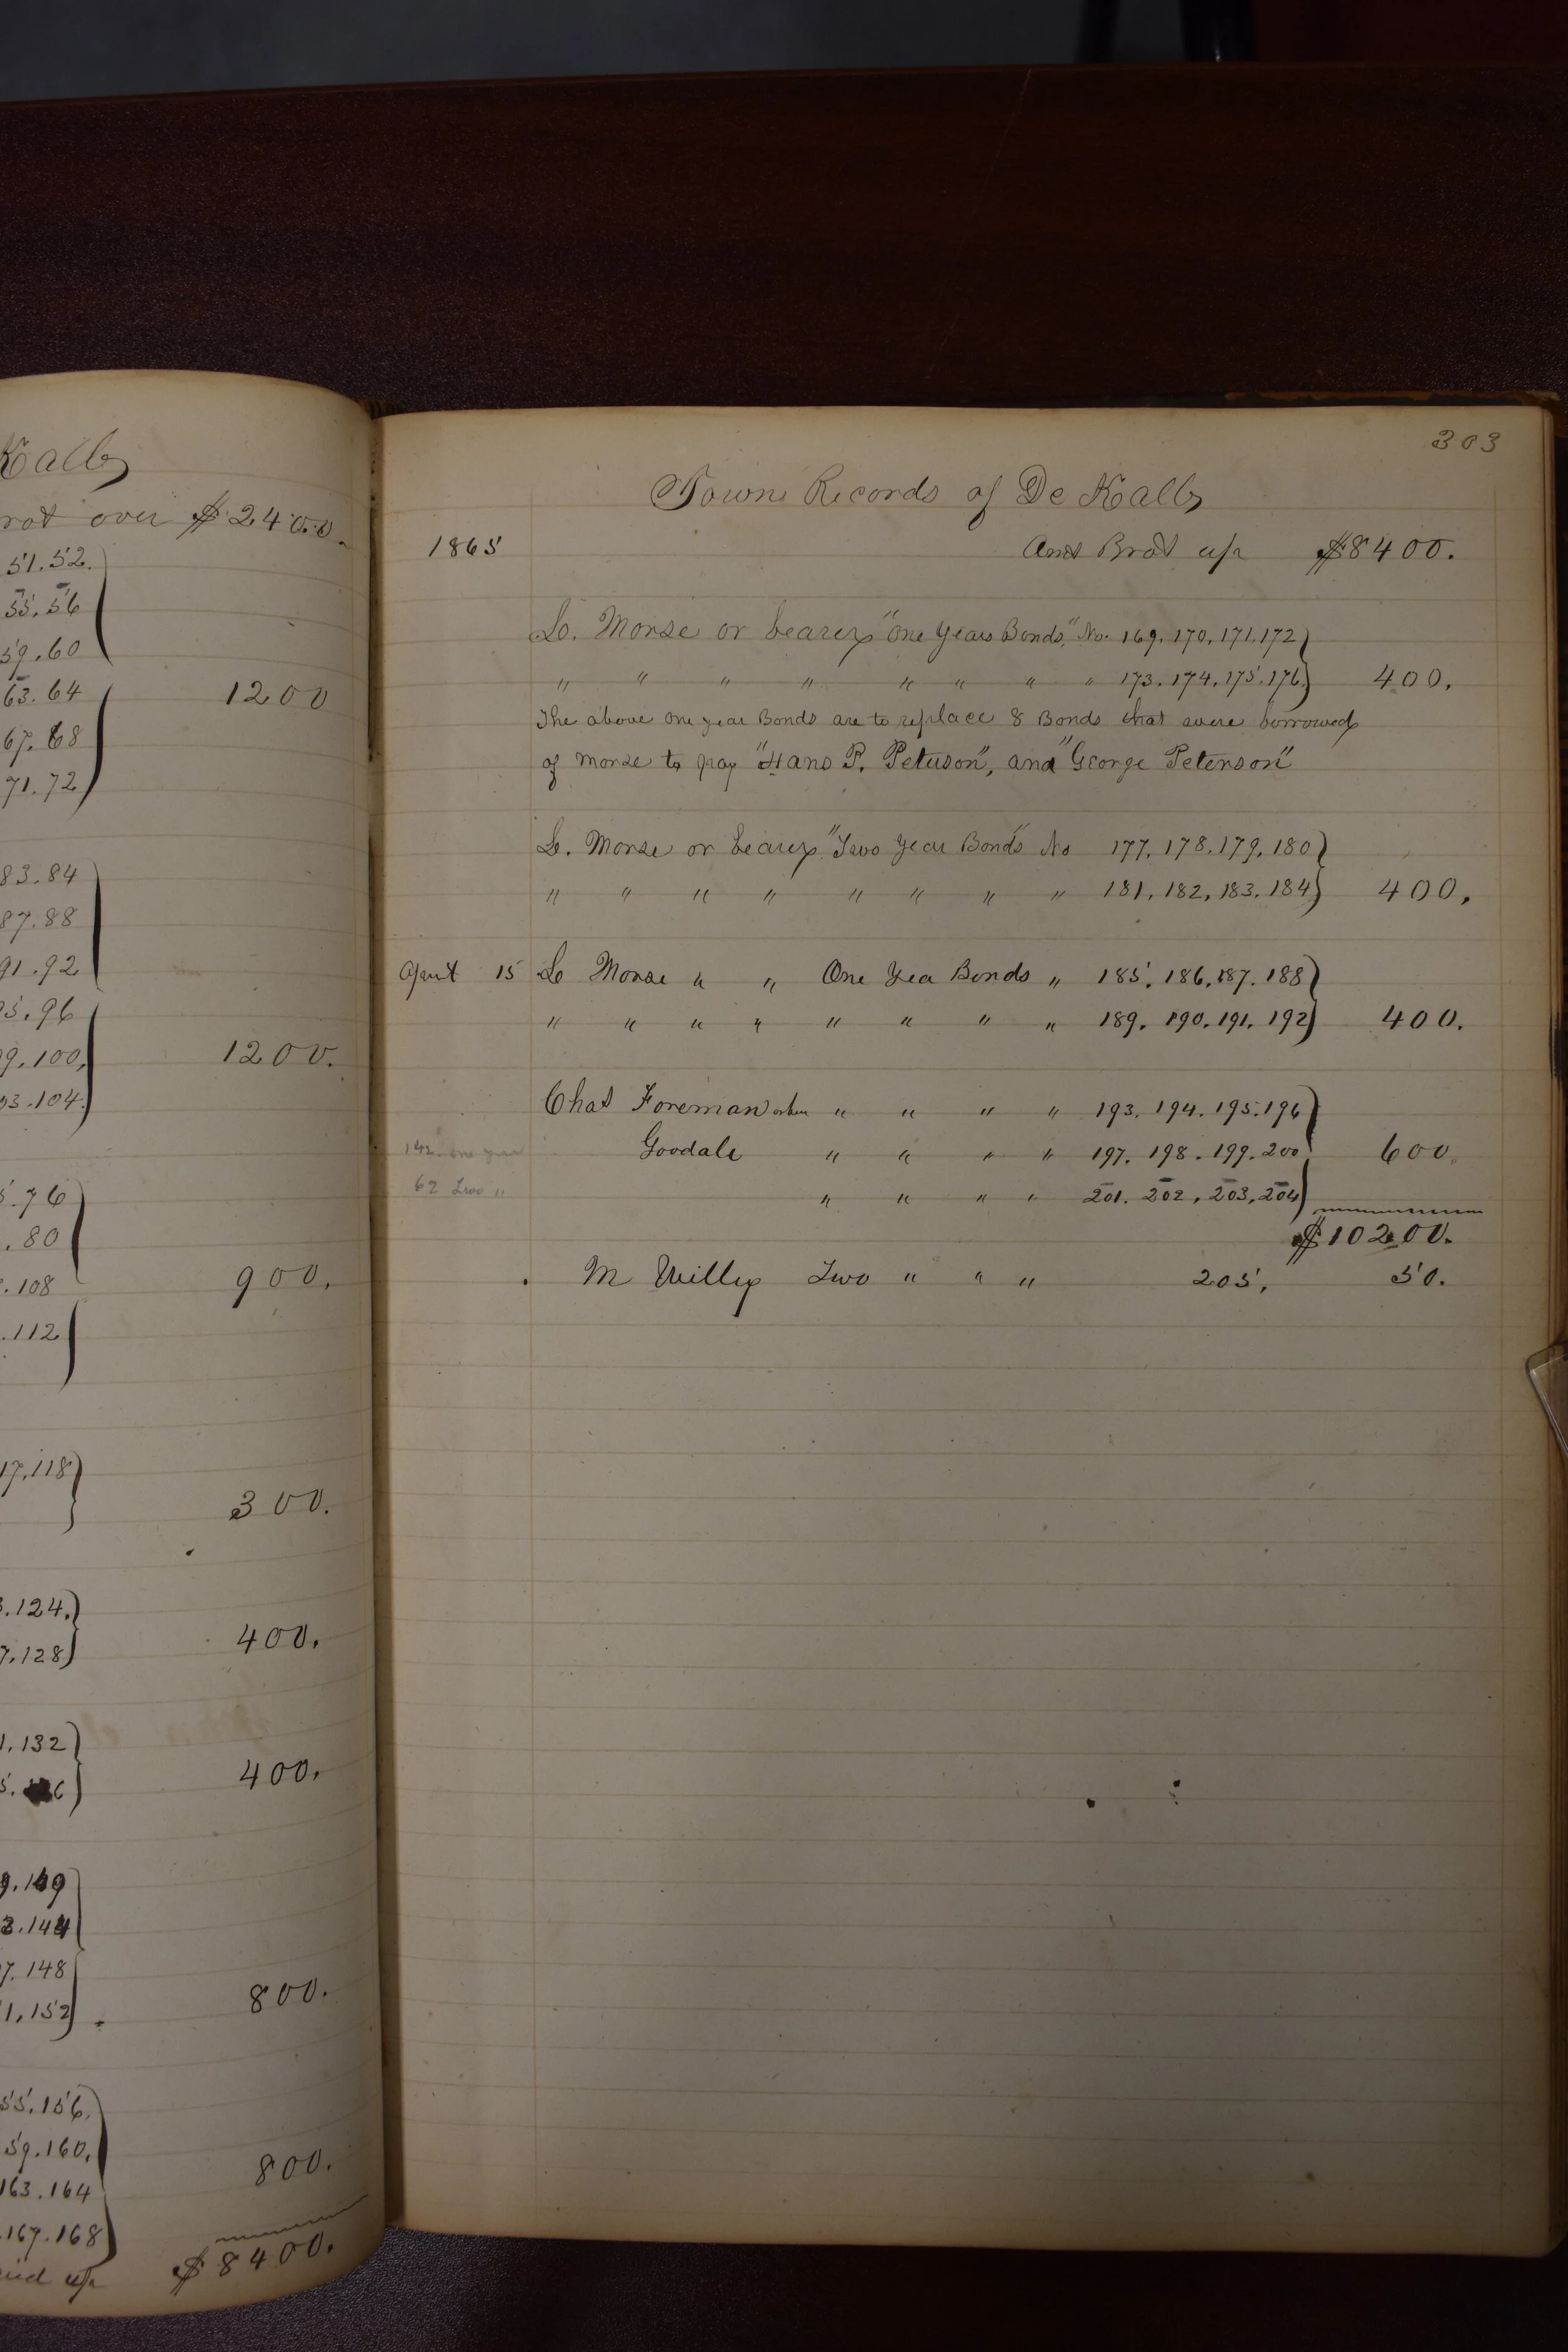 Kalb
over $2400.
51.52.
55.56
59.60
63.64 1200
67.68
71.72
83.84
87.88
91.92
95.96
99.100, 1200.
103.104.
.76
.80
.108 900.
.112
117.118
300.
.124.
400.
7.128
1.132
400.
9.149
3.144
7.148
800.
1.152
55.156.
59.160.
800.
163.164
.167.168
$8400.
303
Town Records of De Kalb
1865 Amt Brot up $8400.
L. Morse or bearer "One Years Bonds," No. 169. 170. 171. 172
" " " " " " " " 173. 174. 175. 176. 400.
The above one year Bonds are to replace 8 Bonds that were borrowed
of Morse to pay "Hans P. Peterson", and "George Peterson"
L. Morse or bearer "Two Year Bonds" No 177. 178. 179. 180
" " " " " " " " 181. 182. 183. 184 400.
April 15 L Morse " " One Yea Bonds " 185. 186. 187. 188
" " " " " " " " 189. 190. 191. 192 400.
Chas Foreman " " " " 193. 194. 195. 196
142. one year Goodale " " " " 197. 198. 199. 200 600.
62 Two " " " " " 201. 202. 203. 204
$10200.
M Willy Two " " " 205. 50.